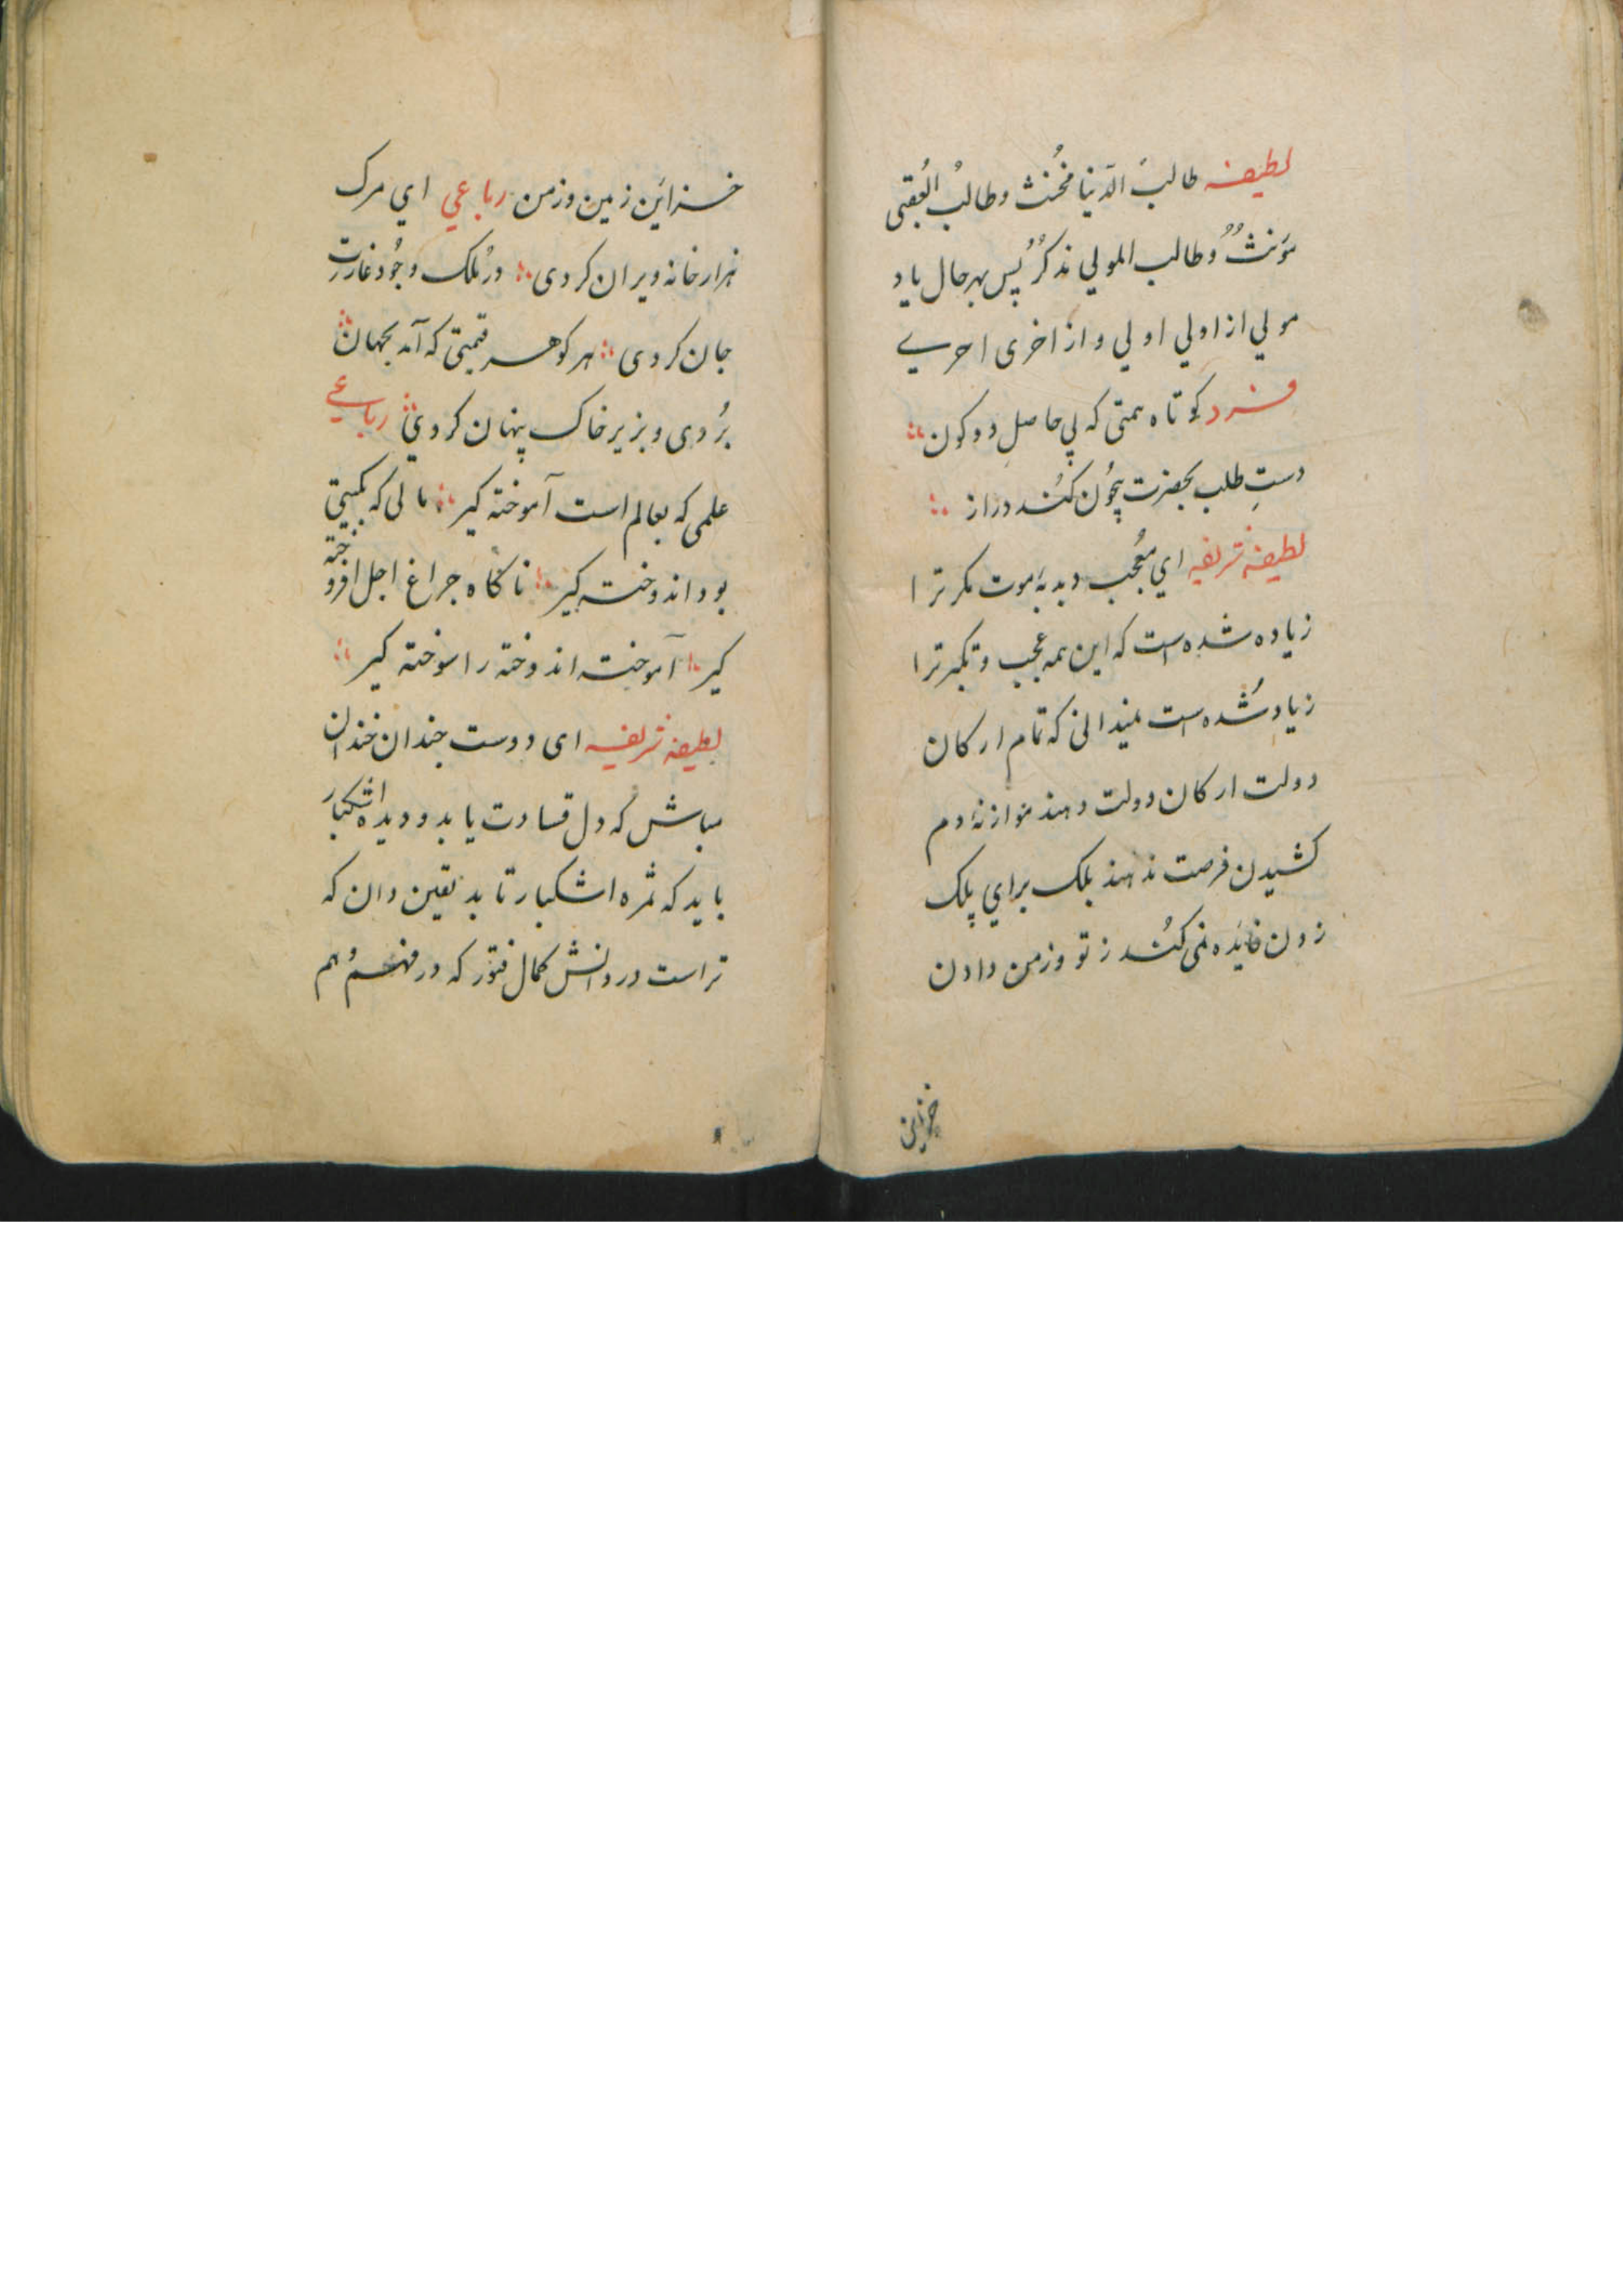 لطیفه طالبُ الدّنیا مُخنث وطالبُ العُقبی
مؤنثٌ وطالب المولي مذکرٌ پس بهرحال یاد
مولي از اولي اولي و از اخری احرے
فرد کوتاه همتی که پی حاصلِ دو کون
دستِ طلب بحضرت بیچُون کُند دراز
لطیفه شریفه اي مُعجب دبدبهٔ موت مکر ترا
زیاده شده است که این همه عجب و تکبر ترا
زیاد شُده است نمیدانی که تمام ارکان
دولت ارکان دولت دهند موازنه دم
کشیدن فرصت ندهند بلک براي پلک
زدن فایٔده نمی کُند ز تو وزمن دادن
خزاین
خزایٔن زمین وزمن رباعي اي مرک
هزار خانه ویران کردی در مُلک وجُود غارت
جان کردی هر کوهر قیمتی که آمد بجهان
بُردی و بزیر خاک پنهان کردي رباعے
علمی که بعالم است آموخته کیر مالی که بکیتی
بود اندوخته کیر ناکاه چراغ اجل افروخته
کیر آموخته اندوخته را سوخته کیر
لطیفه شریفه ای دوست چندان خندان
مباش که دل قساوت یابد و دیده اشکبار
باید که ثمره اشکبار تابد یقین دان که
تراست در دانش کمال فتور که در فهم وُهم